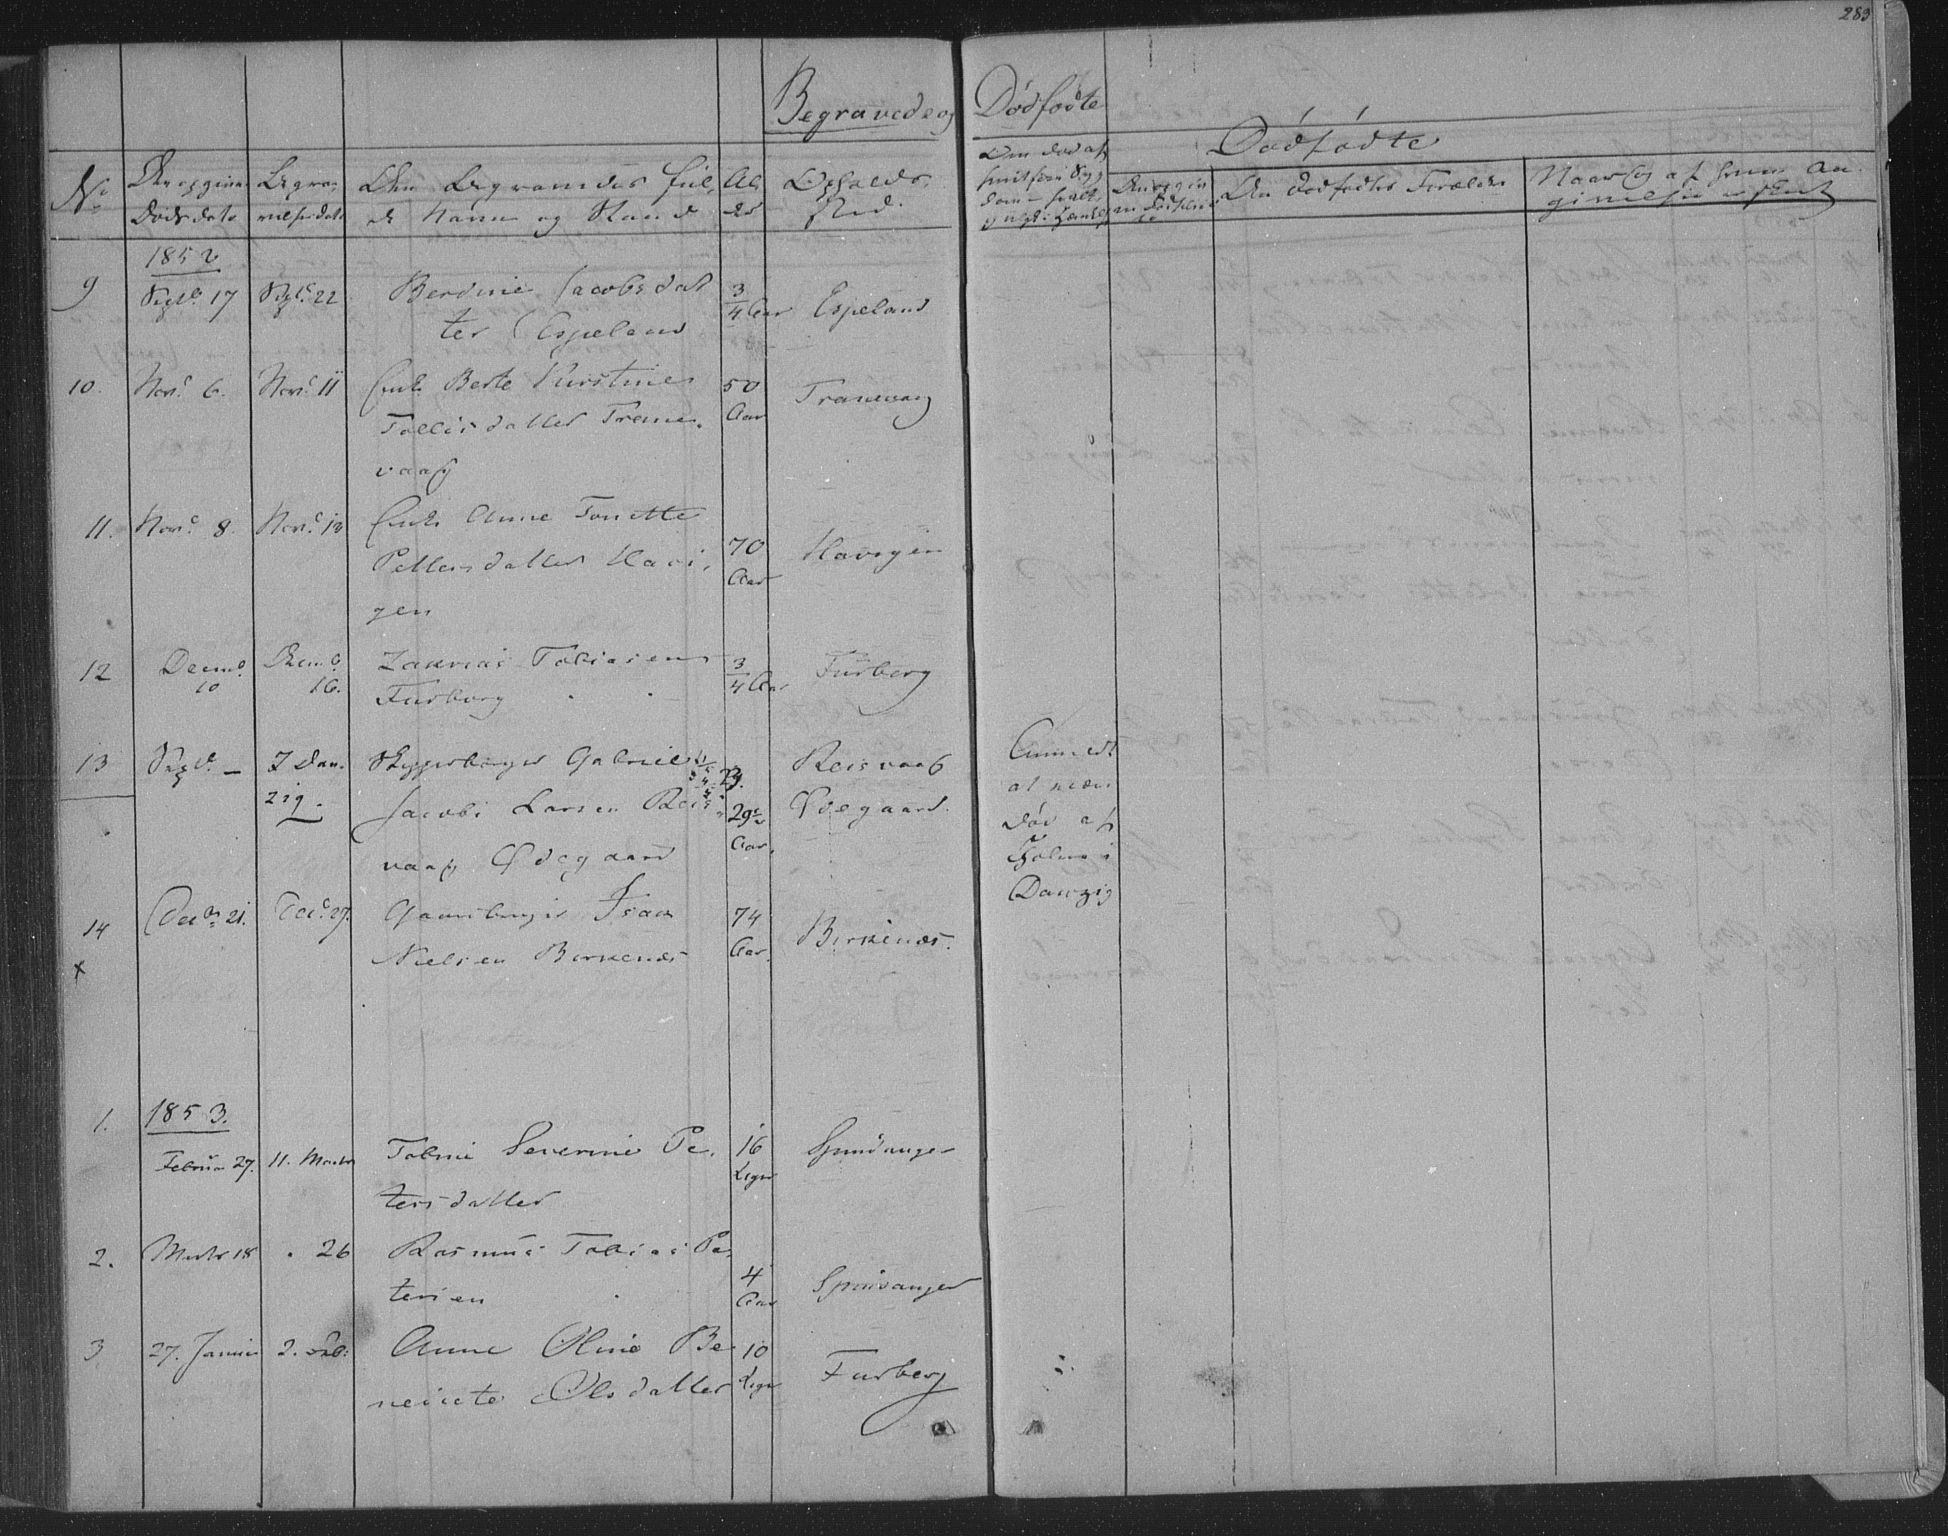 283
Begravede og Dødfødte
Dødfødte
No
Den opgivne
Dødsdato
Begra-
velsesdato
Den Begravedes ful-
de Navn og Stand
Al-
der
Opholds-
sted.
Den Dødfødtes Forældre
1852
9 Septbr 17 Septbr 22 Berdine Jacobsdat
ter Espeland 3/4 Aar Espeland
10. Novbr 6. Novbr 11 Enke Berte Kirstine
Tollisdatter Trane-
vaag 50 Aar Tranevaag
11. Novbr 8. Novbr 13 Enke Anne Tonette
Pettersdatter Havi-
gen 70 Aar Havigen
12 Decemb 10 Decemb 16. Zakrias Tobiasen
Furberg 3/4 Aar Furberg
13 Septb. – I Dan-
zig. Gabriel
Jacob Larsen Reis-
vaag Ødegaard 29 Aar. Reisvaag
Ødegaard.
Anmeldt
at være
død af
Colera i
Danzig
14 Decbr 21. Decbr 27. Gaardbruger Isac
Nielsen Birkenæs 74 Aar. Birkenæs.
x
1853.
1. Februar 27. 11. Marts Tobine Severine Pe-
tersdatter 16 Uger Spindsanger
2. Marts 18 " 26 Rasmus Tobias Pe-
tersen 4 Aar Spindsanger
3 27. Januar 2. Feb: Anne Oline Be-
Olsdatter 10 Uger Furberg